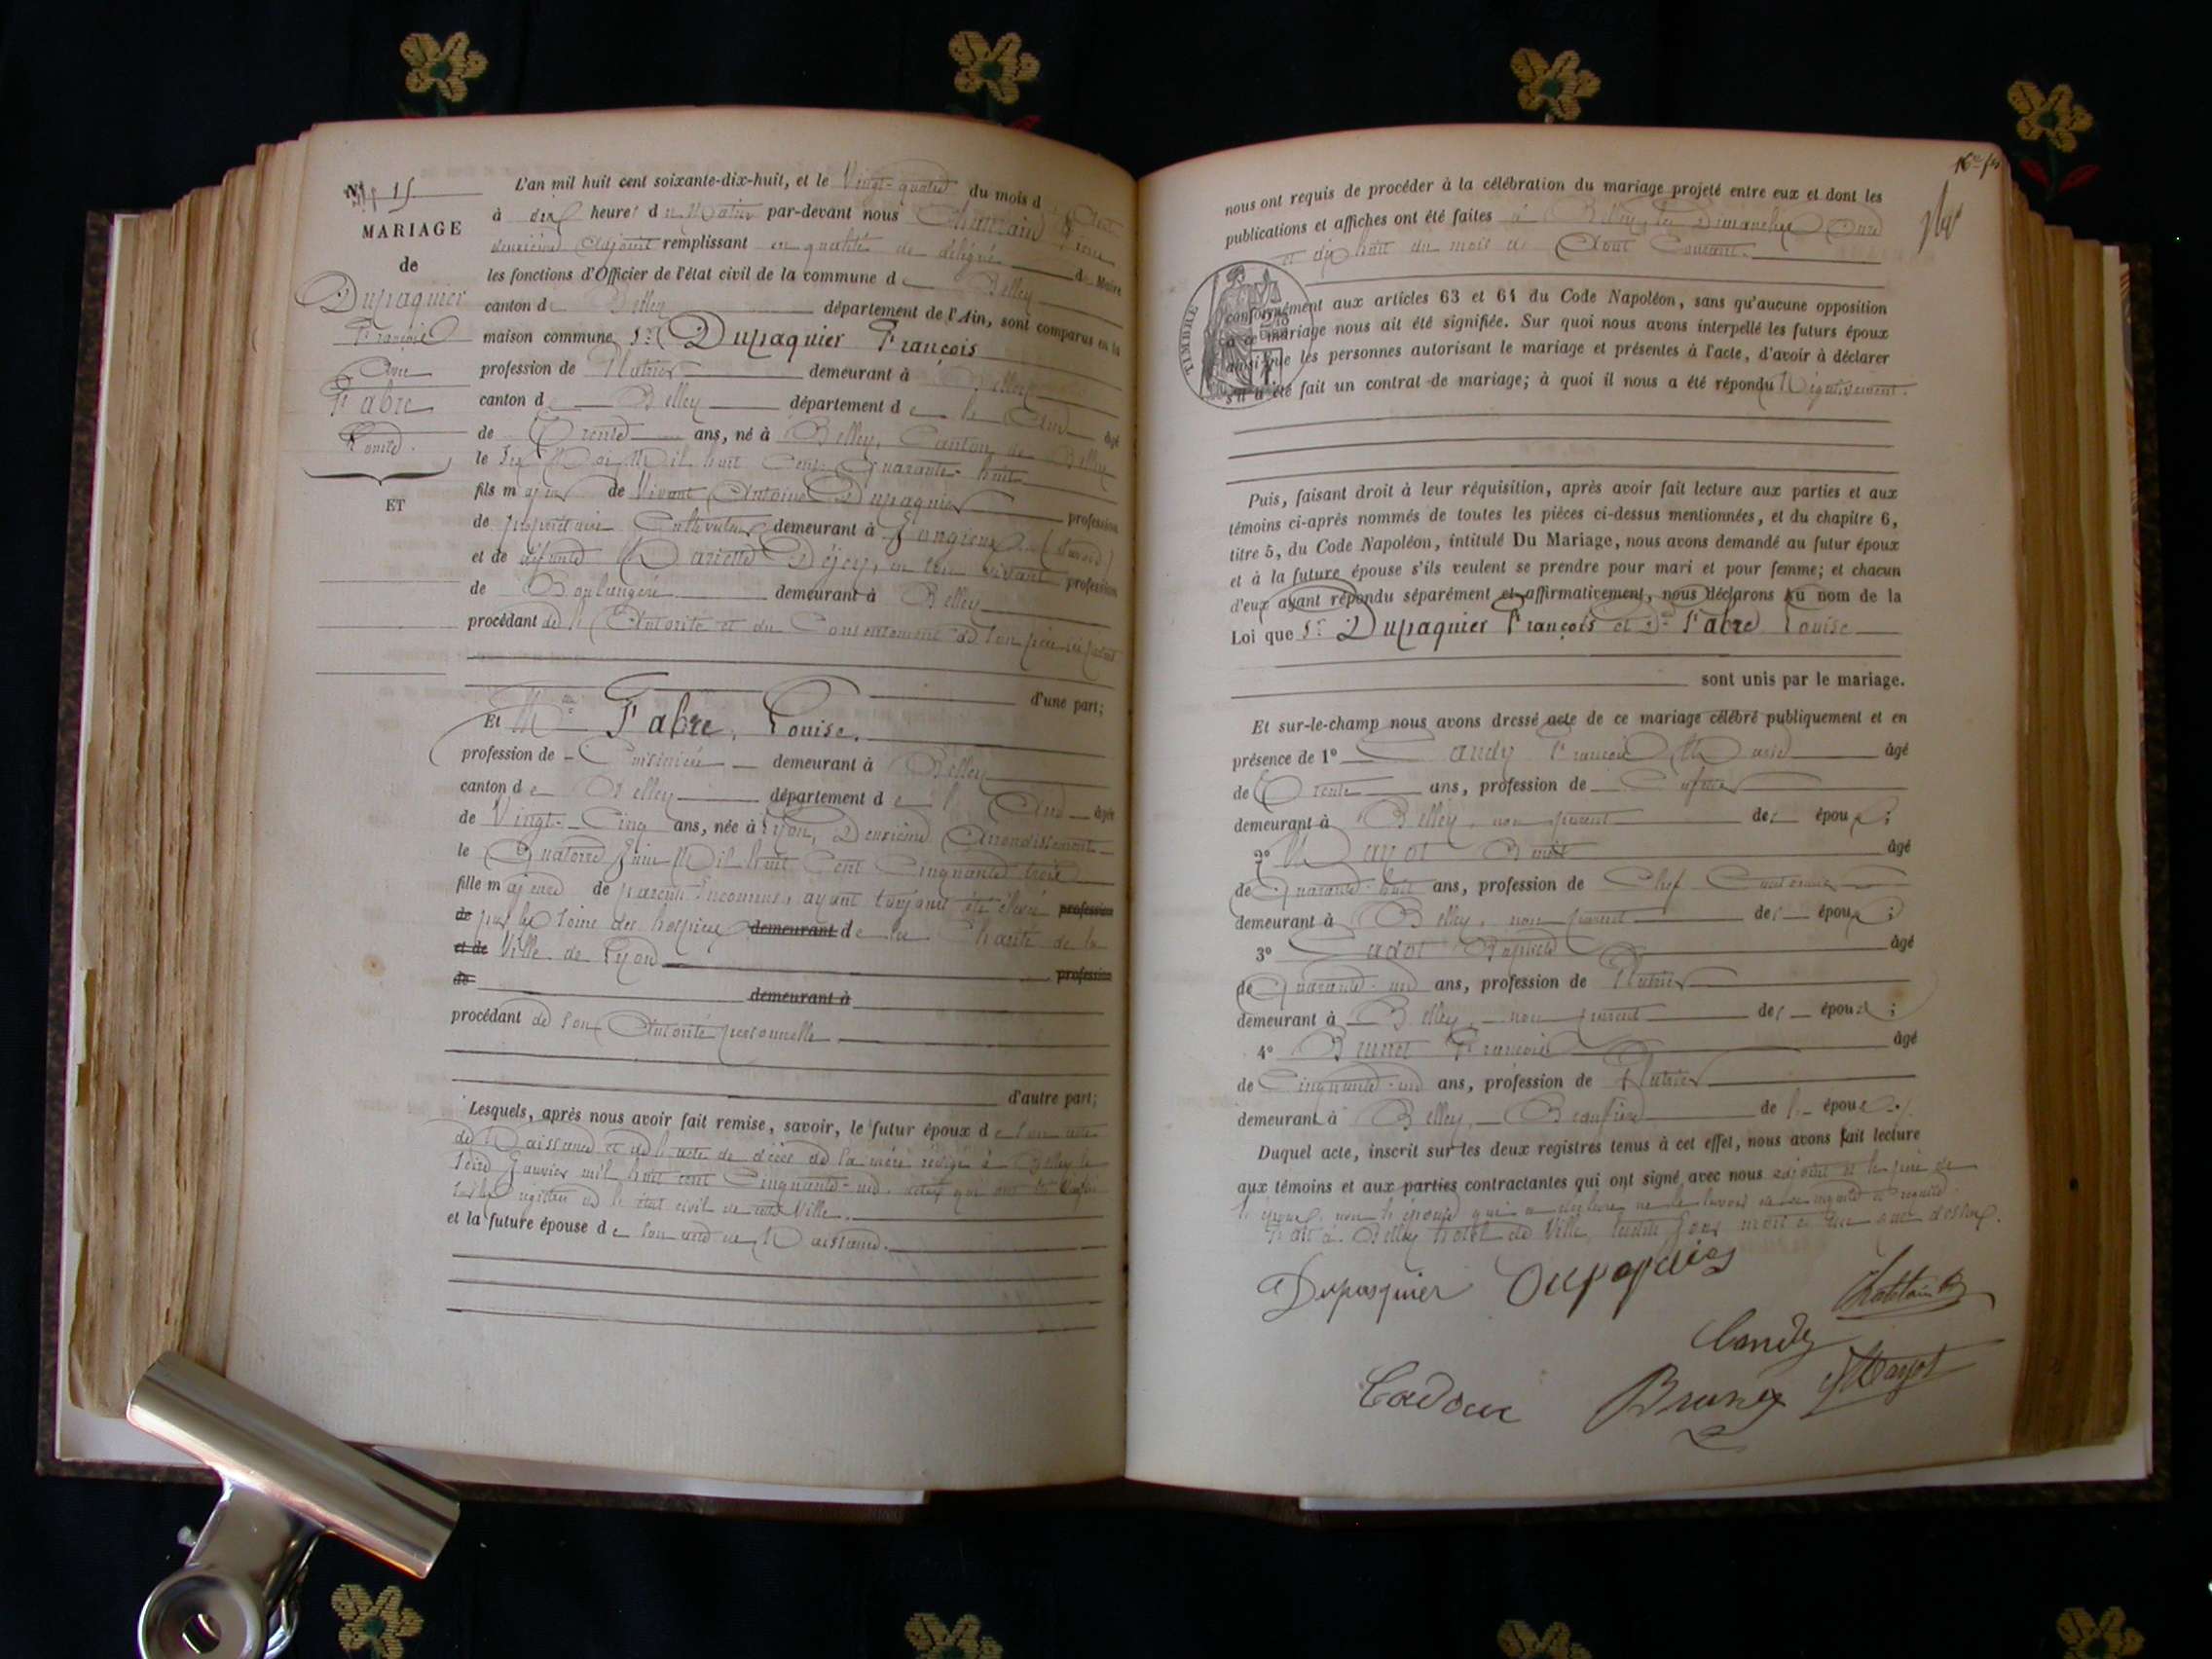 N° 15
MARIAGE
de
Dupaquier
François
Avec
Fabre
Louise.
ET
L'an mil huit cent soixante-dix-huit, et le Vingt-quatre du mois d'Août
à dix heures du Matin par-devant nous
deuxième adjoint remplissant en qualité de délégué de Maire
les fonctions d'Officier de l'état civil de la commune de Belley
canton de Belley département de l'Ain, sont comparus en la
maison commune, Sr Dupaquier François
profession de Plâtrier demeurant à Belley
canton de Belley département de l'Ain âgé
de Trente ans, né à Belley, Canton de Belley
le Six Mai Mil huit Cent Quarante-huit
fils majeur de Vivant Antoine Dupaquier profession
de propriétaire Cultivateur demeurant à Jongieux (Savoie)
et de défunte Mariette Déjey, en son vivant profession
de Boulangère demeurant à Belley
procédant de l'Autorité et du Consentement de son père ici présent
d'une part;
Et Mlle Fabre, Louise.
profession de Cuisinière demeurant à Belley
canton de Belley département de l'Ain âgée
de Vingt-Cinq ans, née à Lyon, Deuxième Arrondissement
le Quatorze Juin Mil huit Cent Cinquante trois
fille majeure de parents inconnus, ayant toujours été élevée profession
de par les soins des hospices demeurant de la Charité de la
et de Ville de Lyon profession
de demeurant à
procédant de son Autorité personnelle
d'autre part;
Lesquels, après nous avoir fait remise, savoir, le futur époux de son acte
de Naissance et de l'acte de décès de sa mère rédigé à Belley le
seize Janvier mil huit cent Cinquante-un, actes qui ont été
sur les registres de l'état civil de cette Ville.
et la future épouse de son acte de Naissance.
16me fts
nous ont requis de procéder à la célébration du mariage projeté entre eux et dont les
publications et affiches ont été faites à Belley, les Dimanches Onze
et dix huit du mois de Août Courant.
TIMBRE
conformément aux articles 63 et 64 du Code Napoléon, sans qu'aucune opposition
à ce mariage nous ait été signifiée. Sur quoi nous avons interpellé les futurs époux
ainsi que les personnes autorisant le mariage et présentes à l'acte, d'avoir à déclarer
s'il a été fait un contrat de mariage; à quoi il nous a été répondu Négativement.
Puis, faisant droit à leur réquisition, après avoir fait lecture aux parties et aux
témoins ci-après nommés de toutes les pièces ci-dessus mentionnées, et du chapitre 6,
titre 5, du Code Napoléon, intitulé Du Mariage, nous avons demandé au futur époux
et à la future épouse s'ils veulent se prendre pour mari et pour femme; et chacun
d'eux ayant répondu séparément et affirmativement, nous déclarons au nom de la
Loi que Sr Dupaquier François et Dlle Fabre Louise
sont unis par le mariage.
Et sur-le-champ nous avons dressé acte de ce mariage célébré publiquement et en
présence de 1° Candy François Marie âgé
de Trente ans, profession de
demeurant à Belley, non parent des époux;
2° Mayot Benoit âgé
de Quarante-huit ans, profession de Chef Cantonnier
demeurant à Belley, non parent des époux;
3° Cadot Baptiste âgé
de Quarante-un ans, profession de Plâtrier
demeurant à Belley, non parent des époux;
4° Brunet François âgé
de Cinquante-un ans, profession de Plâtrier
demeurant à Belley, Beaufrère de l'époux.
Duquel acte, inscrit sur les deux registres tenus à cet effet, nous avons fait lecture
aux témoins et aux parties contractantes qui ont signé avec nous adjoint et le père de
l'époux, non l'épouse qui a déclaré ne le savoir de ce enquise et requise.
Fait à Belley hôtel de Ville, lesdits jour mois et an que dessus.
Dupasquier Dupaquier
Candy
Brunet Mayot